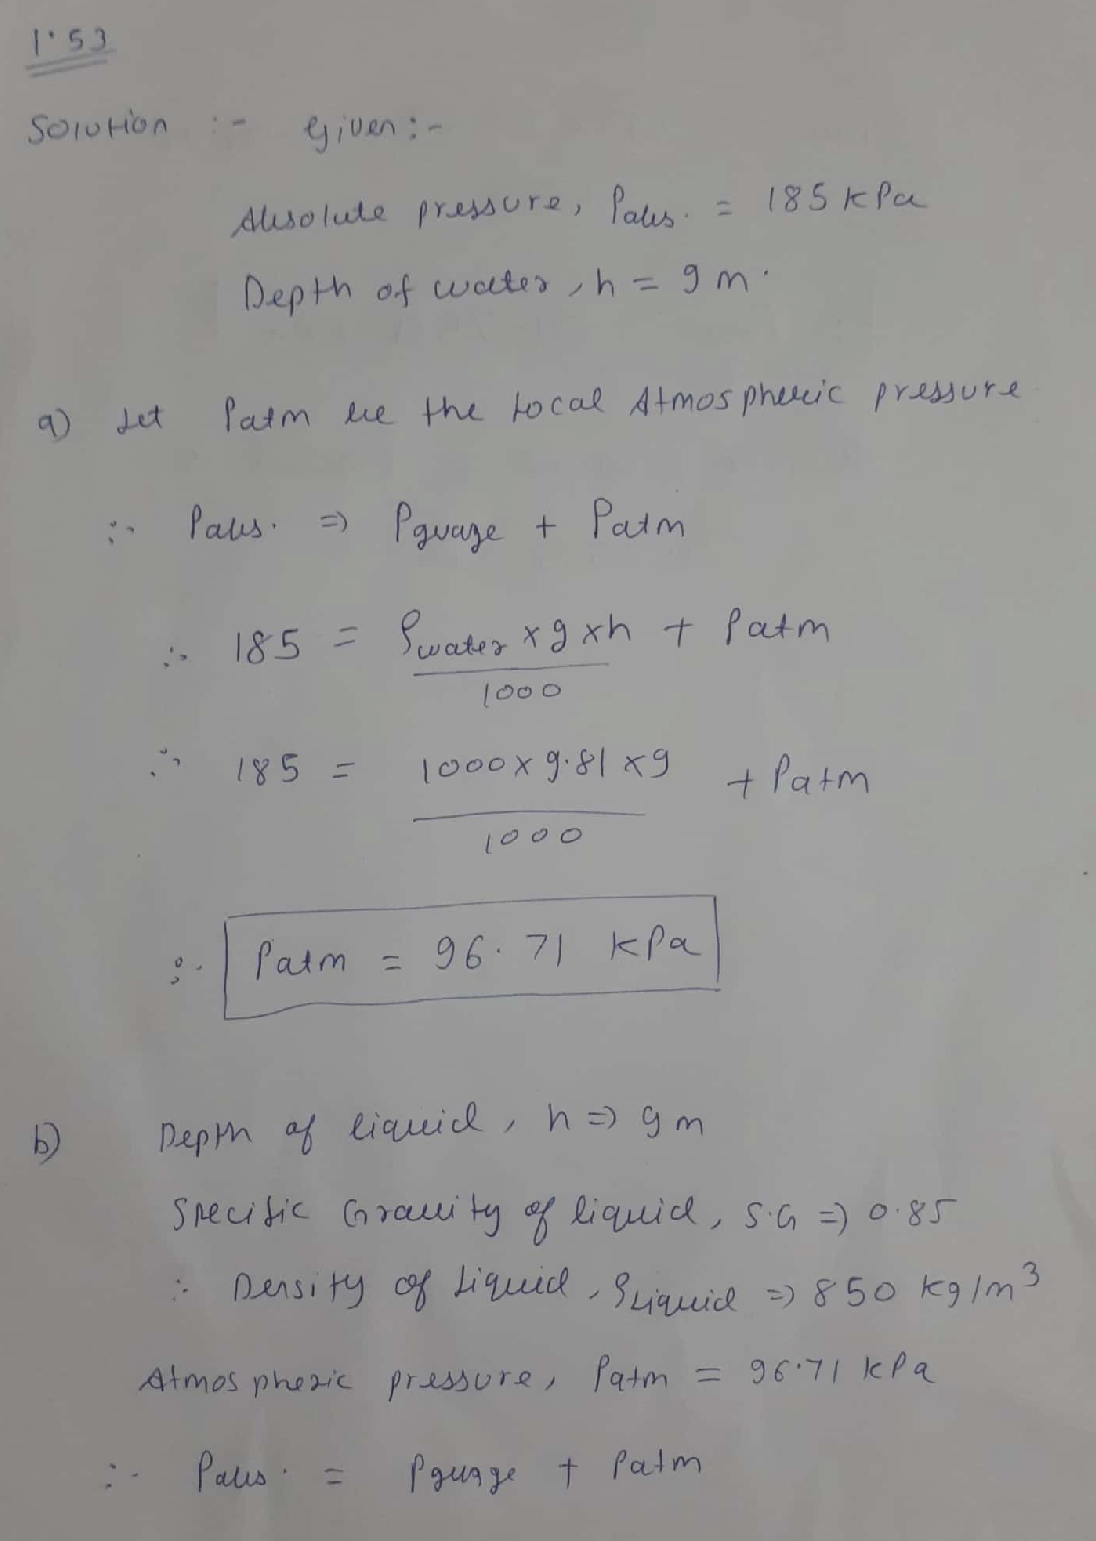 1.53
Solution :- Given :-
Absolute pressure, Pabs. = 185 kPa
Depth of water, h = 9 m.
a) Let Patm be the Local Atmospheric pressure
∴ Pabs. => Pguage + Patm
∴ 185 = ρwater x g x h + Patm
1000
∴ 185 = 1000 x 9.81 x 9 + Patm
1000
∴ Patm = 96.71 kPa
b) Depth of liquid, h => 9 m
Specific Gravity of liquid, S.G => 0.85
∴ Density of Liquid, ρLiquid => 850 kg/m³
Atmospheric pressure, Patm = 96.71 kPa
∴ Pabs. = Pguage + Patm